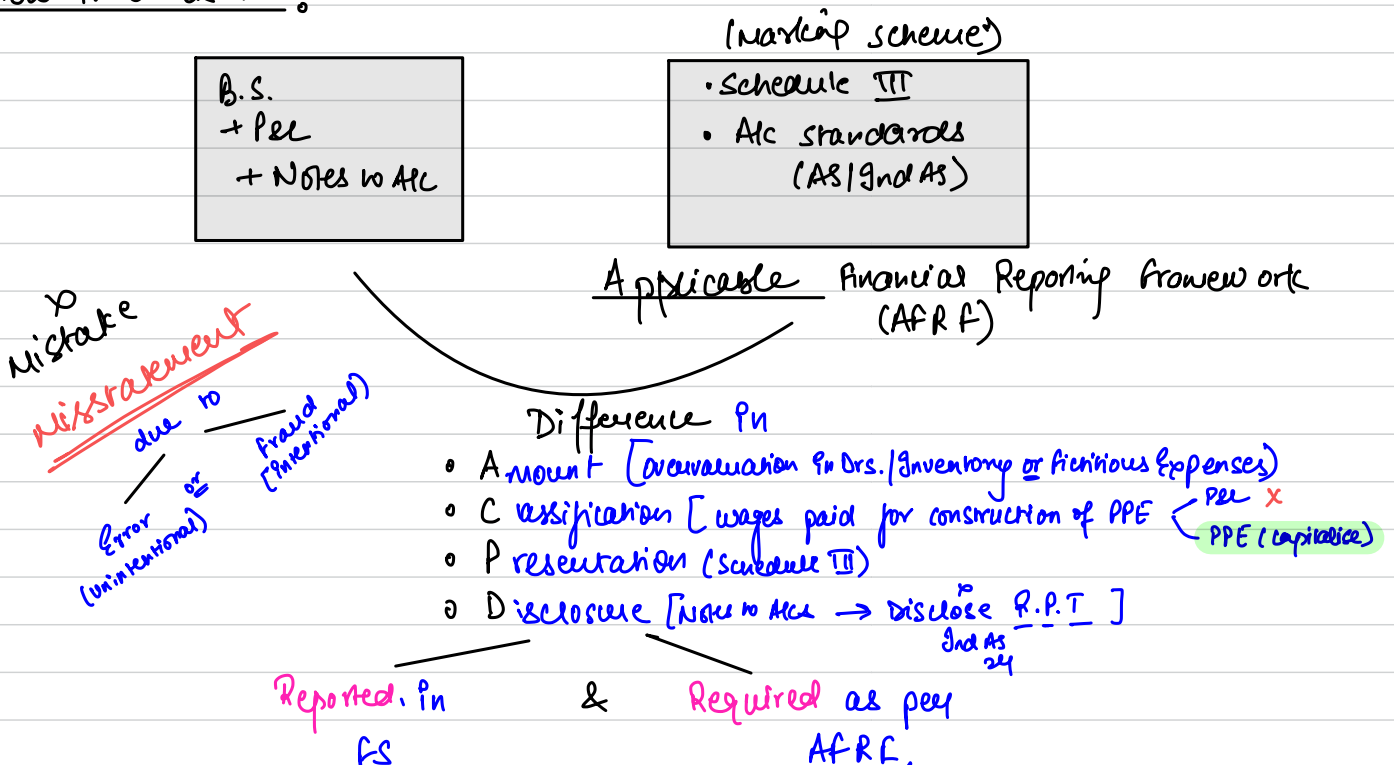 (Marking scheme)
B.S.
+ P&L
+ Notes to A/c
• Schedule III
• A/c standards
(AS/Ind AS)
Applicable Financial Reporting Framework
(AFRF)
Mistake
Misstatement
due to
Error
(unintentional)
or
Fraud
[intentional)
Difference in
• Amount [overvaluation in Drs./Inventory or fictitious Expenses)
• Classification [wages paid for construction of PPE
P&L ×
PPE (capitalise)
• Presentation (Schedule III)
• Disclosure [Notes to A/cs → Disclose R.P.T]
Ind AS
24
Reported in & Required as per
FS AFRF.